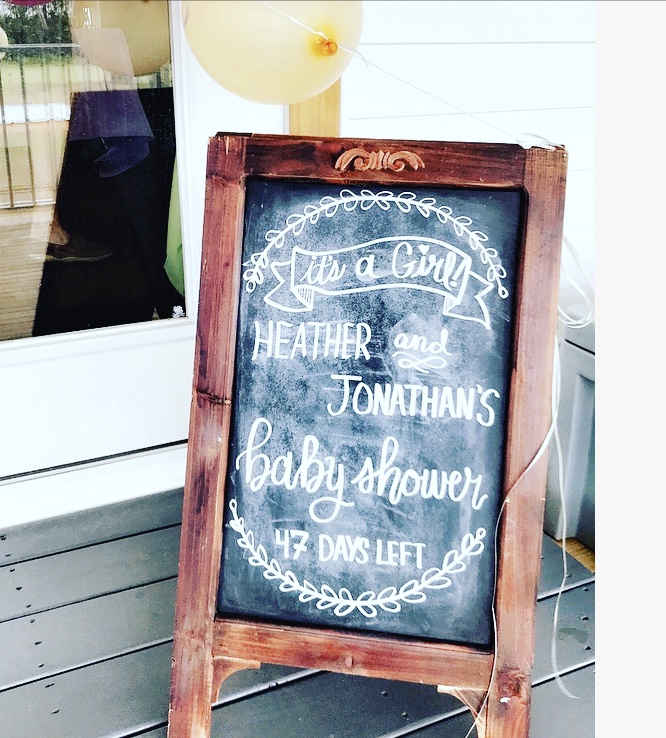 it's a Girl!
HEATHER and
JONATHAN'S
baby shower
47 DAYS LEFT